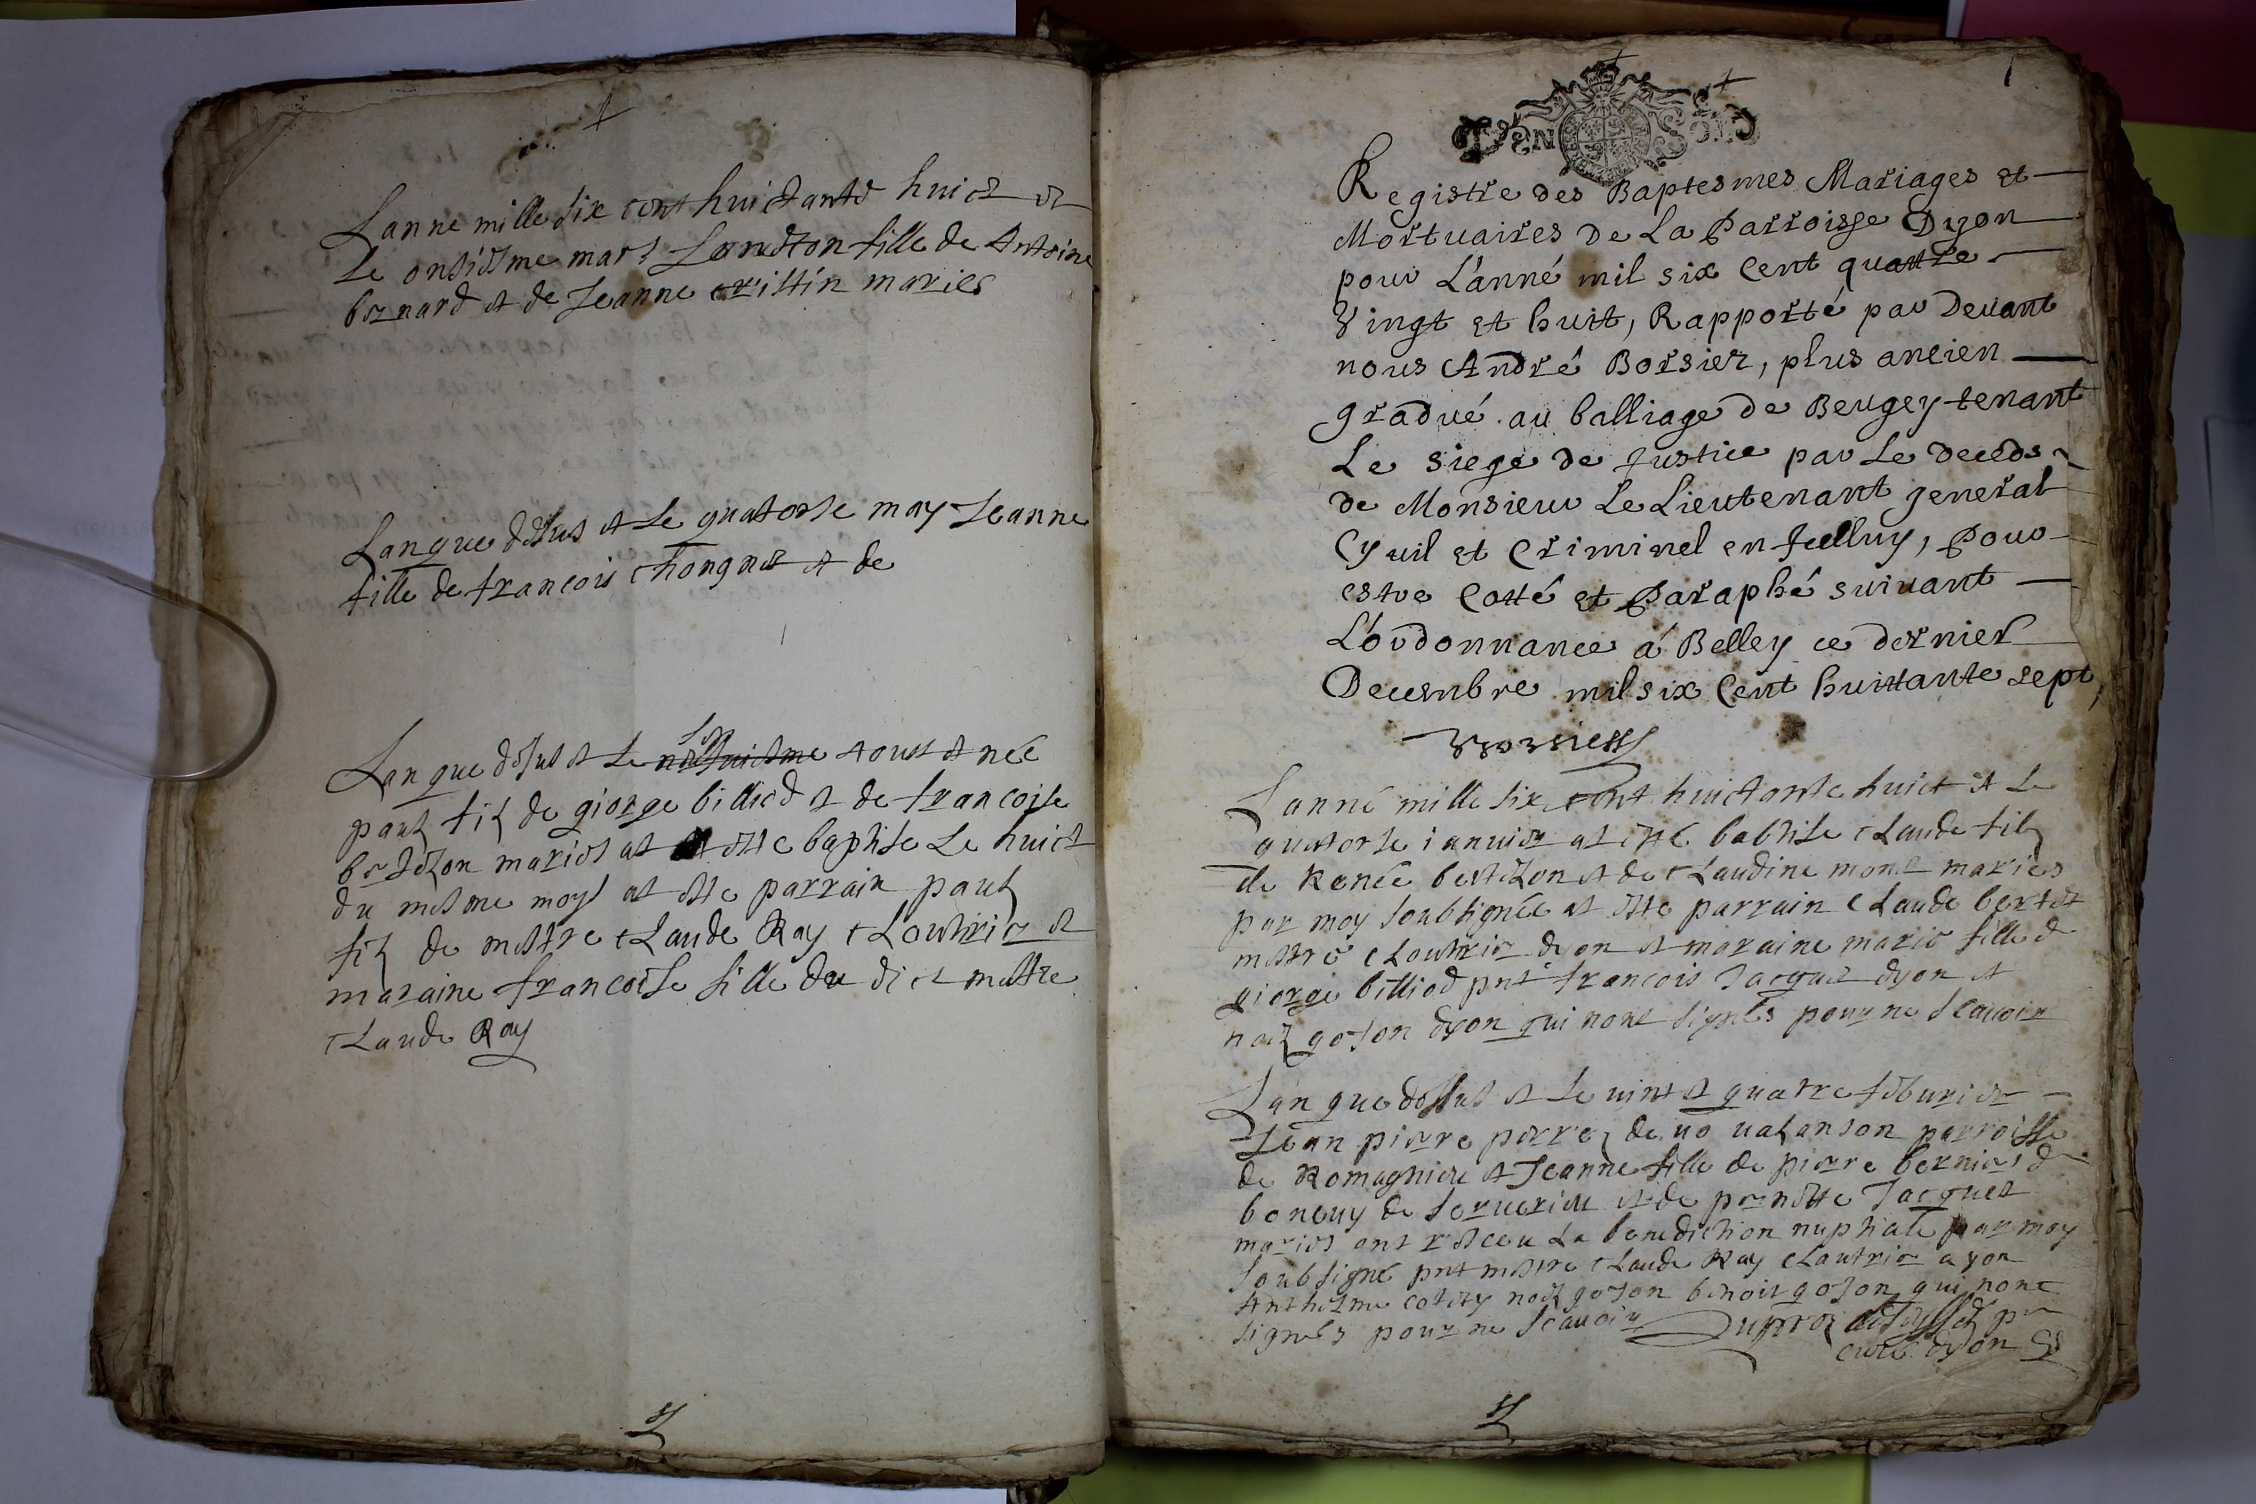 Lanne mille six cent huictante huict et
le onsiesme mars Landton fille de Antoine
bernard et de Jeanne cristin maries
Lan que dessus et le quatorse may Jeanne
fille de francois Chongnet et de
Lan que dessus et le six aoust et née
paul fil de giorge billiod et de francoise
bertelon maries at estté baptisé Le huict
du mesme moys at esté parrain paul
fil de mestre Claude Ray Cloutrier et
maraine francoise fille du dict mestre
Claude Ray
1
Registre des Baptesmes Mariages et
Mortuaires De La Parroisse Dyon
pour L'anné mil six Cent quattre
Vingt et huitt, Rapporté par Devant
nous André Borsier, plus ancien
gradué au balliage de Beugey tenant
Le siege de Justice par Le decéds
de Monsieur Le Lieutenant general
Cyuil et Criminel en Jcelluy, Pour
estre Cotté et Paraphé suivant
L'ordonnance á Belley ce dernier
Decembre mil six Cent huittante sept,
Lanné mille six cent huictante huict et Le
quatorse ianvier at esté babtise Claude fil
de Renée bertelon et de Claudine monet maries
par moy soubsignée at esté parrain Claude bertet
mestre Cloutrier dyon et maraine marie fille de
giorge billiod pnt francois Jacquet dyon et
noel gojon dyon qui nont signes pour ne scavoir
Lan que dessus et Le vint et quatre feburier
Jean pierre perret de vo valanson parroisse
de Romagnieu et Jeanne fille de pierre bernier de
boneuy de serverieu et de pernette Jacquet
maries ont resceu La benediction nuptiale par moy
soubsigné pnt mestre Claude Ray Cloutrier ayon
Anthelme noel gojon benoit gojon qui nont
signés pour ne scavoir
curé dyon